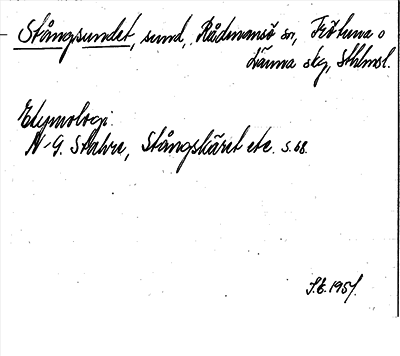 Stångsundet, sund, Rådmansö sn, Frötuna o
Länna skg, Sthlmsl.
Etymologi:
N-G. Stahre, Stångskäret etc. s. 68.
S.E. 1951.